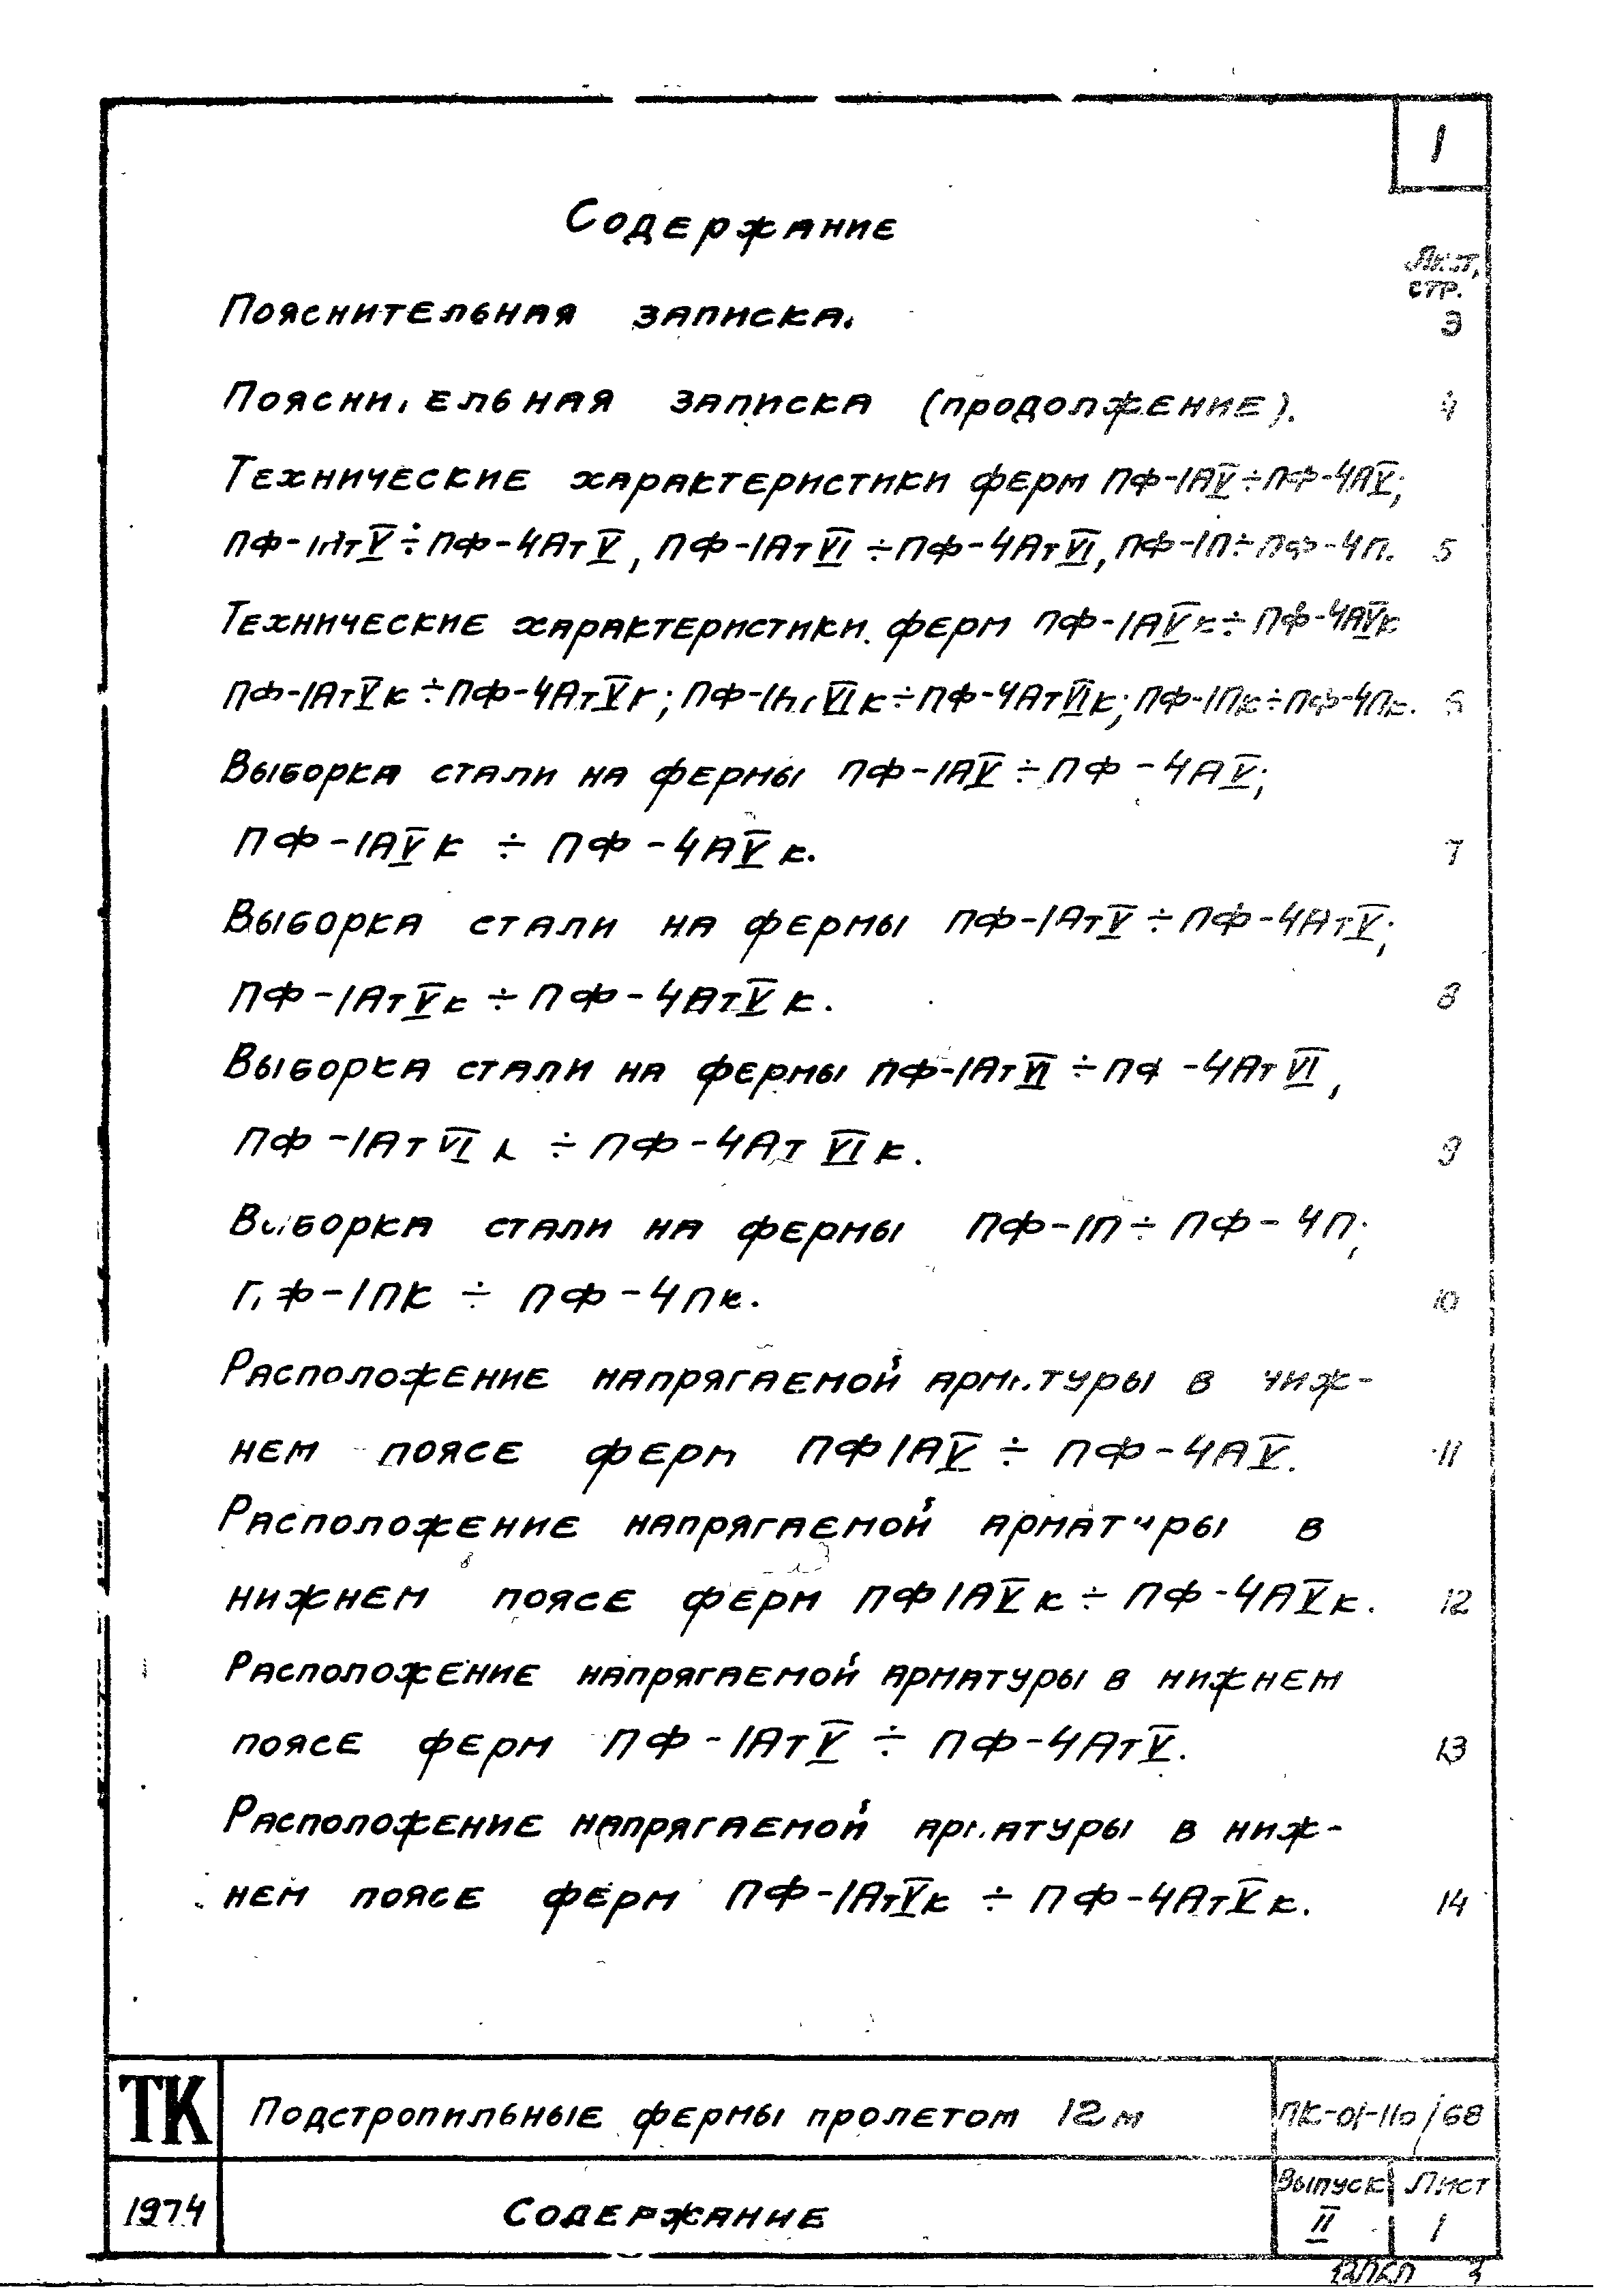 1
Содержание
Лист,
стр.
Пояснительная записка. 3
Пояснительная записка (продолжение). 4
Технические характеристики ферм ПФ-1АV÷ПФ-4АV;
ПФ-1АтV÷ПФ-4АтV, ПФ-1АтVI÷ПФ-4АтVI, ПФ-1П÷ПФ-4П. 5
Технические характеристики ферм ПФ-1АVк÷ПФ-4АVк
ПФ-1АтVк÷ПФ-4АтVк; ПФ-1АтVIк÷ПФ-4АтVIк; ПФ-1Пк÷ПФ-4Пк. 6
Выборка стали на фермы ПФ-1АV÷ПФ-4АV;
ПФ-1АVк ÷ ПФ-4АVк. 7
Выборка стали на фермы ПФ-1АтV÷ПФ-4АтV;
ПФ-1АтVк ÷ ПФ-4АтVк. 8
Выборка стали на фермы ПФ-1АтVI ÷ ПФ-4АтVI,
ПФ-1АтVIк ÷ ПФ-4АтVIк. 9
Выборка стали на фермы ПФ-1П ÷ ПФ-4П;
ПФ-1ПК ÷ ПФ-4Пк. 10
Расположение напрягаемой арматуры в ниж-
нем поясе ферм ПФ1АV ÷ ПФ-4АV. 11
Расположение напрягаемой арматуры в
нижнем поясе ферм ПФ1АVк ÷ ПФ-4АVк. 12
Расположение напрягаемой арматуры в нижнем
поясе ферм ПФ-1АтV ÷ ПФ-4АтV. 13
Расположение напрягаемой арматуры в ниж-
нем поясе ферм ПФ-1АтVк ÷ ПФ-4АтVк. 14
ТК Подстропильные фермы пролетом 12м ПК-01-110/68
1974 Содержание Выпуск II Лист 1